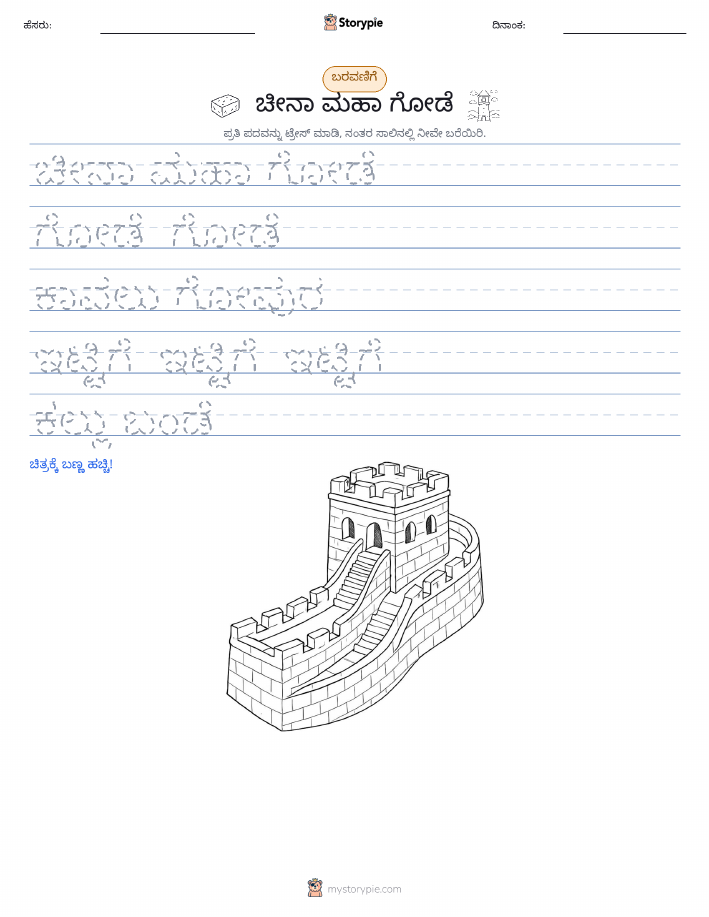 ಹೆಸರು:
Storypie
ದಿನಾಂಕ:
ಬರವಣಿಗೆ
ಚೀನಾ ಮಹಾ ಗೋಡೆ
ಪ್ರತಿ ಪದವನ್ನು ಟ್ರೇಸ್ ಮಾಡಿ, ನಂತರ ಸಾಲಿನಲ್ಲಿ ನೀವೇ ಬರೆಯಿರಿ.
ಚೀನಾ ಮಹಾ ಗೋಡೆ
ಗೋಡೆ ಗೋಡೆ
ಕಾವಲು ಗೋಪುರ
ಇಟ್ಟಿಗೆ ಇಟ್ಟಿಗೆ ಇಟ್ಟಿಗೆ
ಕಲ್ಲು ಬಂಡೆ
ಚಿತ್ರಕ್ಕೆ ಬಣ್ಣ ಹಚ್ಚಿ!
mystorypie.com